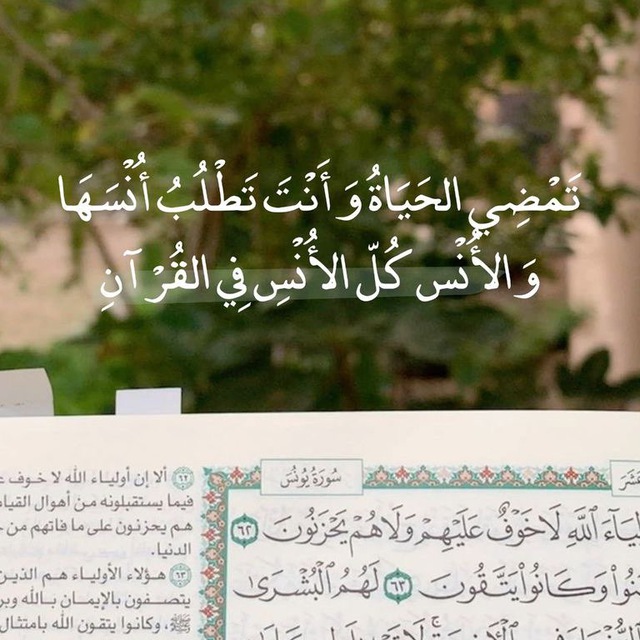 تَمْضِي الحَيَاةُ وَ أَنْتَ تَطْلُبُ أُنْسَهَا
وَ الأُنْس كُلّ الأُنْسِ فِي القُرْآنِ
سُورَةُ يُونُس
عَلَيْهِمْ وَلَا هُمْ يَحْزَنُونَ ٦٢ ٱللَّهِ لَا خَوْفٌ
وَكَانُوا۟ يَتَّقُونَ ٦٣ لَهُمُ ٱلْبُشْرَىٰ
٦٢ ألا إن أولياء الله لا خوف
فيما يستقبلونه من أهوال
هم يحزنون على ما فاتهم من
الدنيا.
٦٣ هؤلاء الأولياء هم الذين
يتصفون بالإيمان بالله
ﷺ، وكانوا يتقون الله بامتثال